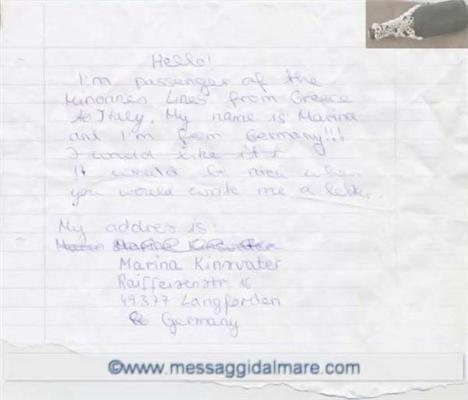 Hello!
I'm passenger of the
Minoanen Lines from Greece
to Italy. My name is Marina
and I'm from Germany!!!
I would like it i
It would be nice when
you would write me a letter.
My address is:
Marina Kinsvater
Marina Kinsvater
Raiffeisenstr 16
49377 Langförden
Germany
©www.messaggidalmare.com